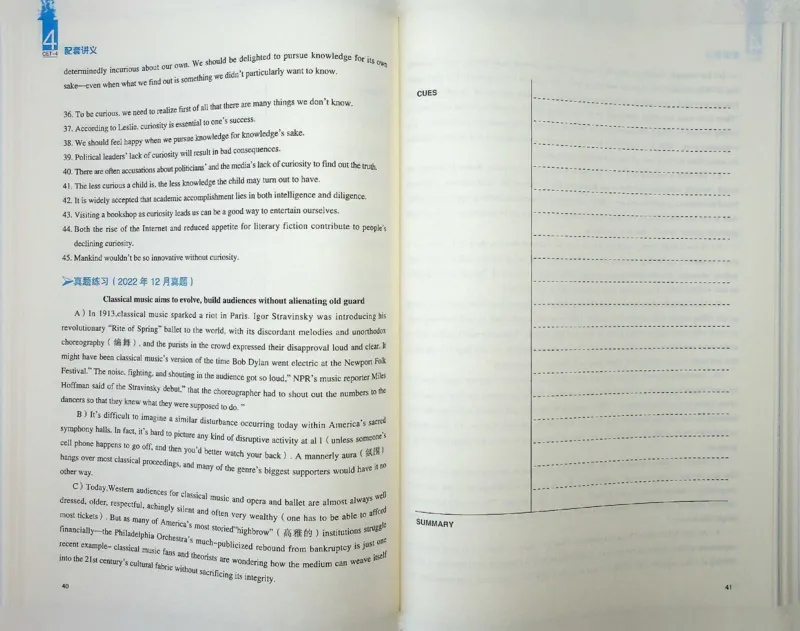 4
CET-4
配套讲义
determinedly incurious about our own. We should be delighted to pursue knowledge for its own
sake—even when what we find out is something we didn't particularly want to know.
36. To be curious, we need to realize first of all that there are many things we don't know.
37. According to Leslie, curiosity is essential to one's success.
38. We should feel happy when we pursue knowledge for knowledge's sake.
39. Political leaders' lack of curiosity will result in bad consequences.
40. There are often accusations about politicians' and the media's lack of curiosity to find out the truth.
41. The less curious a child is, the less knowledge the child may turn out to have.
42. It is widely accepted that academic accomplishment lies in both intelligence and diligence.
43. Visiting a bookshop as curiosity leads us can be a good way to entertain ourselves.
44. Both the rise of the Internet and reduced appetite for literary fiction contribute to people's
declining curiosity.
45. Mankind wouldn't be so innovative without curiosity.
真题练习（2022 年 12 月真题）
Classical music aims to evolve, build audiences without alienating old guard
A）In 1913,classical music sparked a riot in Paris. Igor Stravinsky was introducing his
revolutionary "Rite of Spring" ballet to the world, with its discordant melodies and unorthodox
choreography（编舞）, and the purists in the crowd expressed their disapproval loud and clear. It
might have been classical music's version of the time Bob Dylan went electric at the Newport Folk
Festival." The noise, fighting, and shouting in the audience got so loud," NPR's music reporter Miles
Hoffman said of the Stravinsky debut," that the choreographer had to shout out the numbers to the
dancers so that they knew what they were supposed to do. "
B）It's difficult to imagine a similar disturbance occurring today within America's sacred
symphony halls. In fact, it's hard to picture any kind of disruptive activity at al l（unless someone's
cell phone happens to go off, and then you'd better watch your back）. A mannerly aura（氛围）
hangs over most classical proceedings, and many of the genre's biggest supporters would have it no
other way.
C）Today,Western audiences for classical music and opera and ballet are almost always well
dressed, older, respectful, achingly silent and often very wealthy（one has to be able to afford
most tickets）. But as many of America's most storied"highbrow"（高雅的）institutions struggle
financially—the Philadelphia Orchestra's much-publicized rebound from bankruptcy is just one
recent example– classical music fans and theorists are wondering how the medium can weave itself
into the 21st century's cultural fabric without sacrificing its integrity.
40
CUES
SUMMARY
41